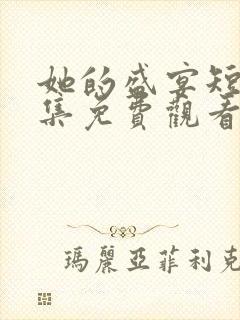 她的盛宴短
集免費觀看
瑪麗亞菲利克